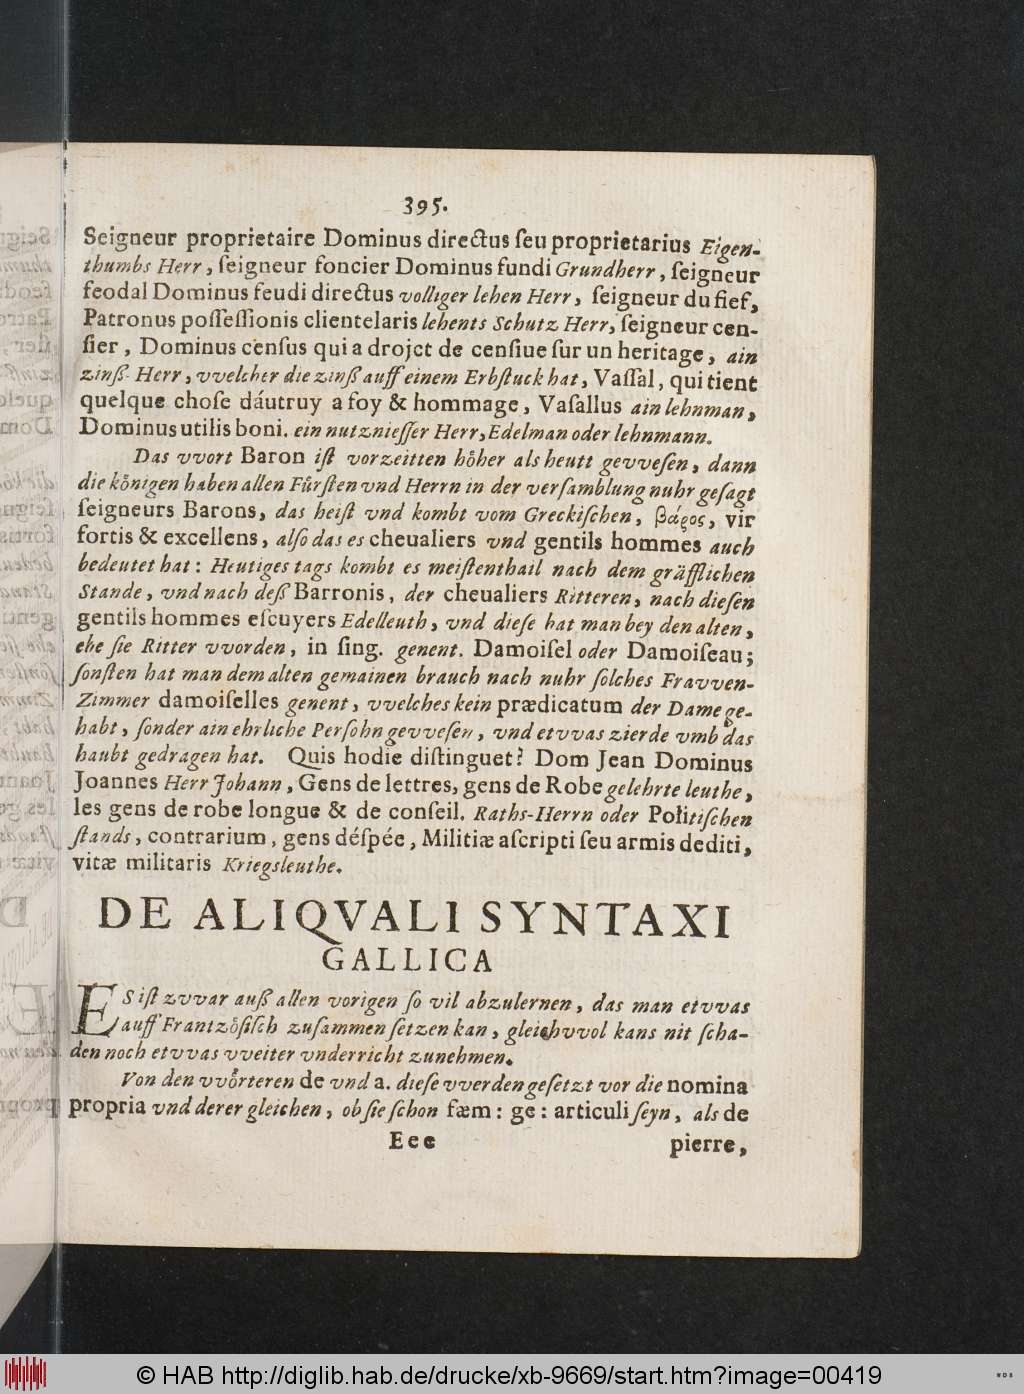 395.
Seigneur proprietaire Dominus directus ſeu proprietarius Eigen-
thumbs Herr, ſeigneur foncier Dominus fundi Grundherr, ſeigneur
feodal Dominus feudi directus volliger lehen Herr, ſeigneur du fief,
Patronus poſſeſſionis clientelaris lehents Schutz Herr, ſeigneur cen-
ſier, Dominus cenſus qui a drojct de cenſiue ſur un heritage, ain
zinß- Herr, vvelcher die zinß auff einem Erbſtuck hat, Vaſſal, qui tient
quelque choſe dáutruy a foy & hommage, Vaſallus ain lehnman,
Dominus utilis boni. ein nutznieſſer Herr, Edelman oder lehnmann.
Das vvort Baron iſt vorzeitten hoͤher als heutt gevveſen, dann
die koͤnigen haben allen Fuͤrſten vnd Herrn in der verſamblung nuhr geſagt
ſeigneurs Barons, das heiſt vnd kombt vom Greckiſchen, βάρος, vir
fortis & excellens, alſo das es cheualiers vnd gentils hommes auch
bedeutet hat: Heutiges tags kombt es meiſtenthail nach dem gräfflichen
Stande, vnd nach deß Barronis, der cheualiers Ritteren, nach dieſen
gentils hommes eſcuyers Edelleuth, vnd dieſe hat man bey den alten,
ehe ſie Ritter vvorden, in ſing. genent. Damoiſel oder Damoiſeau;
ſonſten hat man dem alten gemainen brauch nach nuhr ſolches Fravven-
Zimmer damoiſelles genent, vvelches kein prædicatum der Dame ge-
habt, ſonder ain ehrliche Perſohn gevveſen, vnd etvvas zierde vmb das
haubt gedragen hat. Quis hodie diſtinguet? Dom Jean Dominus
Joannes Herr Johann, Gens de lettres, gens de Robe gelehrte leuthe,
les gens de robe longue & de conſeil. Raths-Herrn oder Politiſchen
ſtands, contrarium, gens déſpée, Militiæ aſcripti ſeu armis dediti,
vitæ militaris Kriegsleuthe.
DE ALIQVALI SYNTAXI
GALLICA
ES iſt zvvar auß allen vorigen ſo vil abzulernen, das man etvvas
auff Frantzoͤſiſch zuſammen ſetzen kan, gleichvvol kans nit ſcha-
den noch etvvas vveiter vnderricht zunehmen.
Von den vvoͤrteren de vnd a. dieſe vverden geſetzt vor die nomina
propria vnd derer gleichen, ob ſie ſchon fæm: ge: articuli ſeyn, als de
Eee pierre,
© HAB http://diglib.hab.de/drucke/xb-9669/start.htm?image=00419